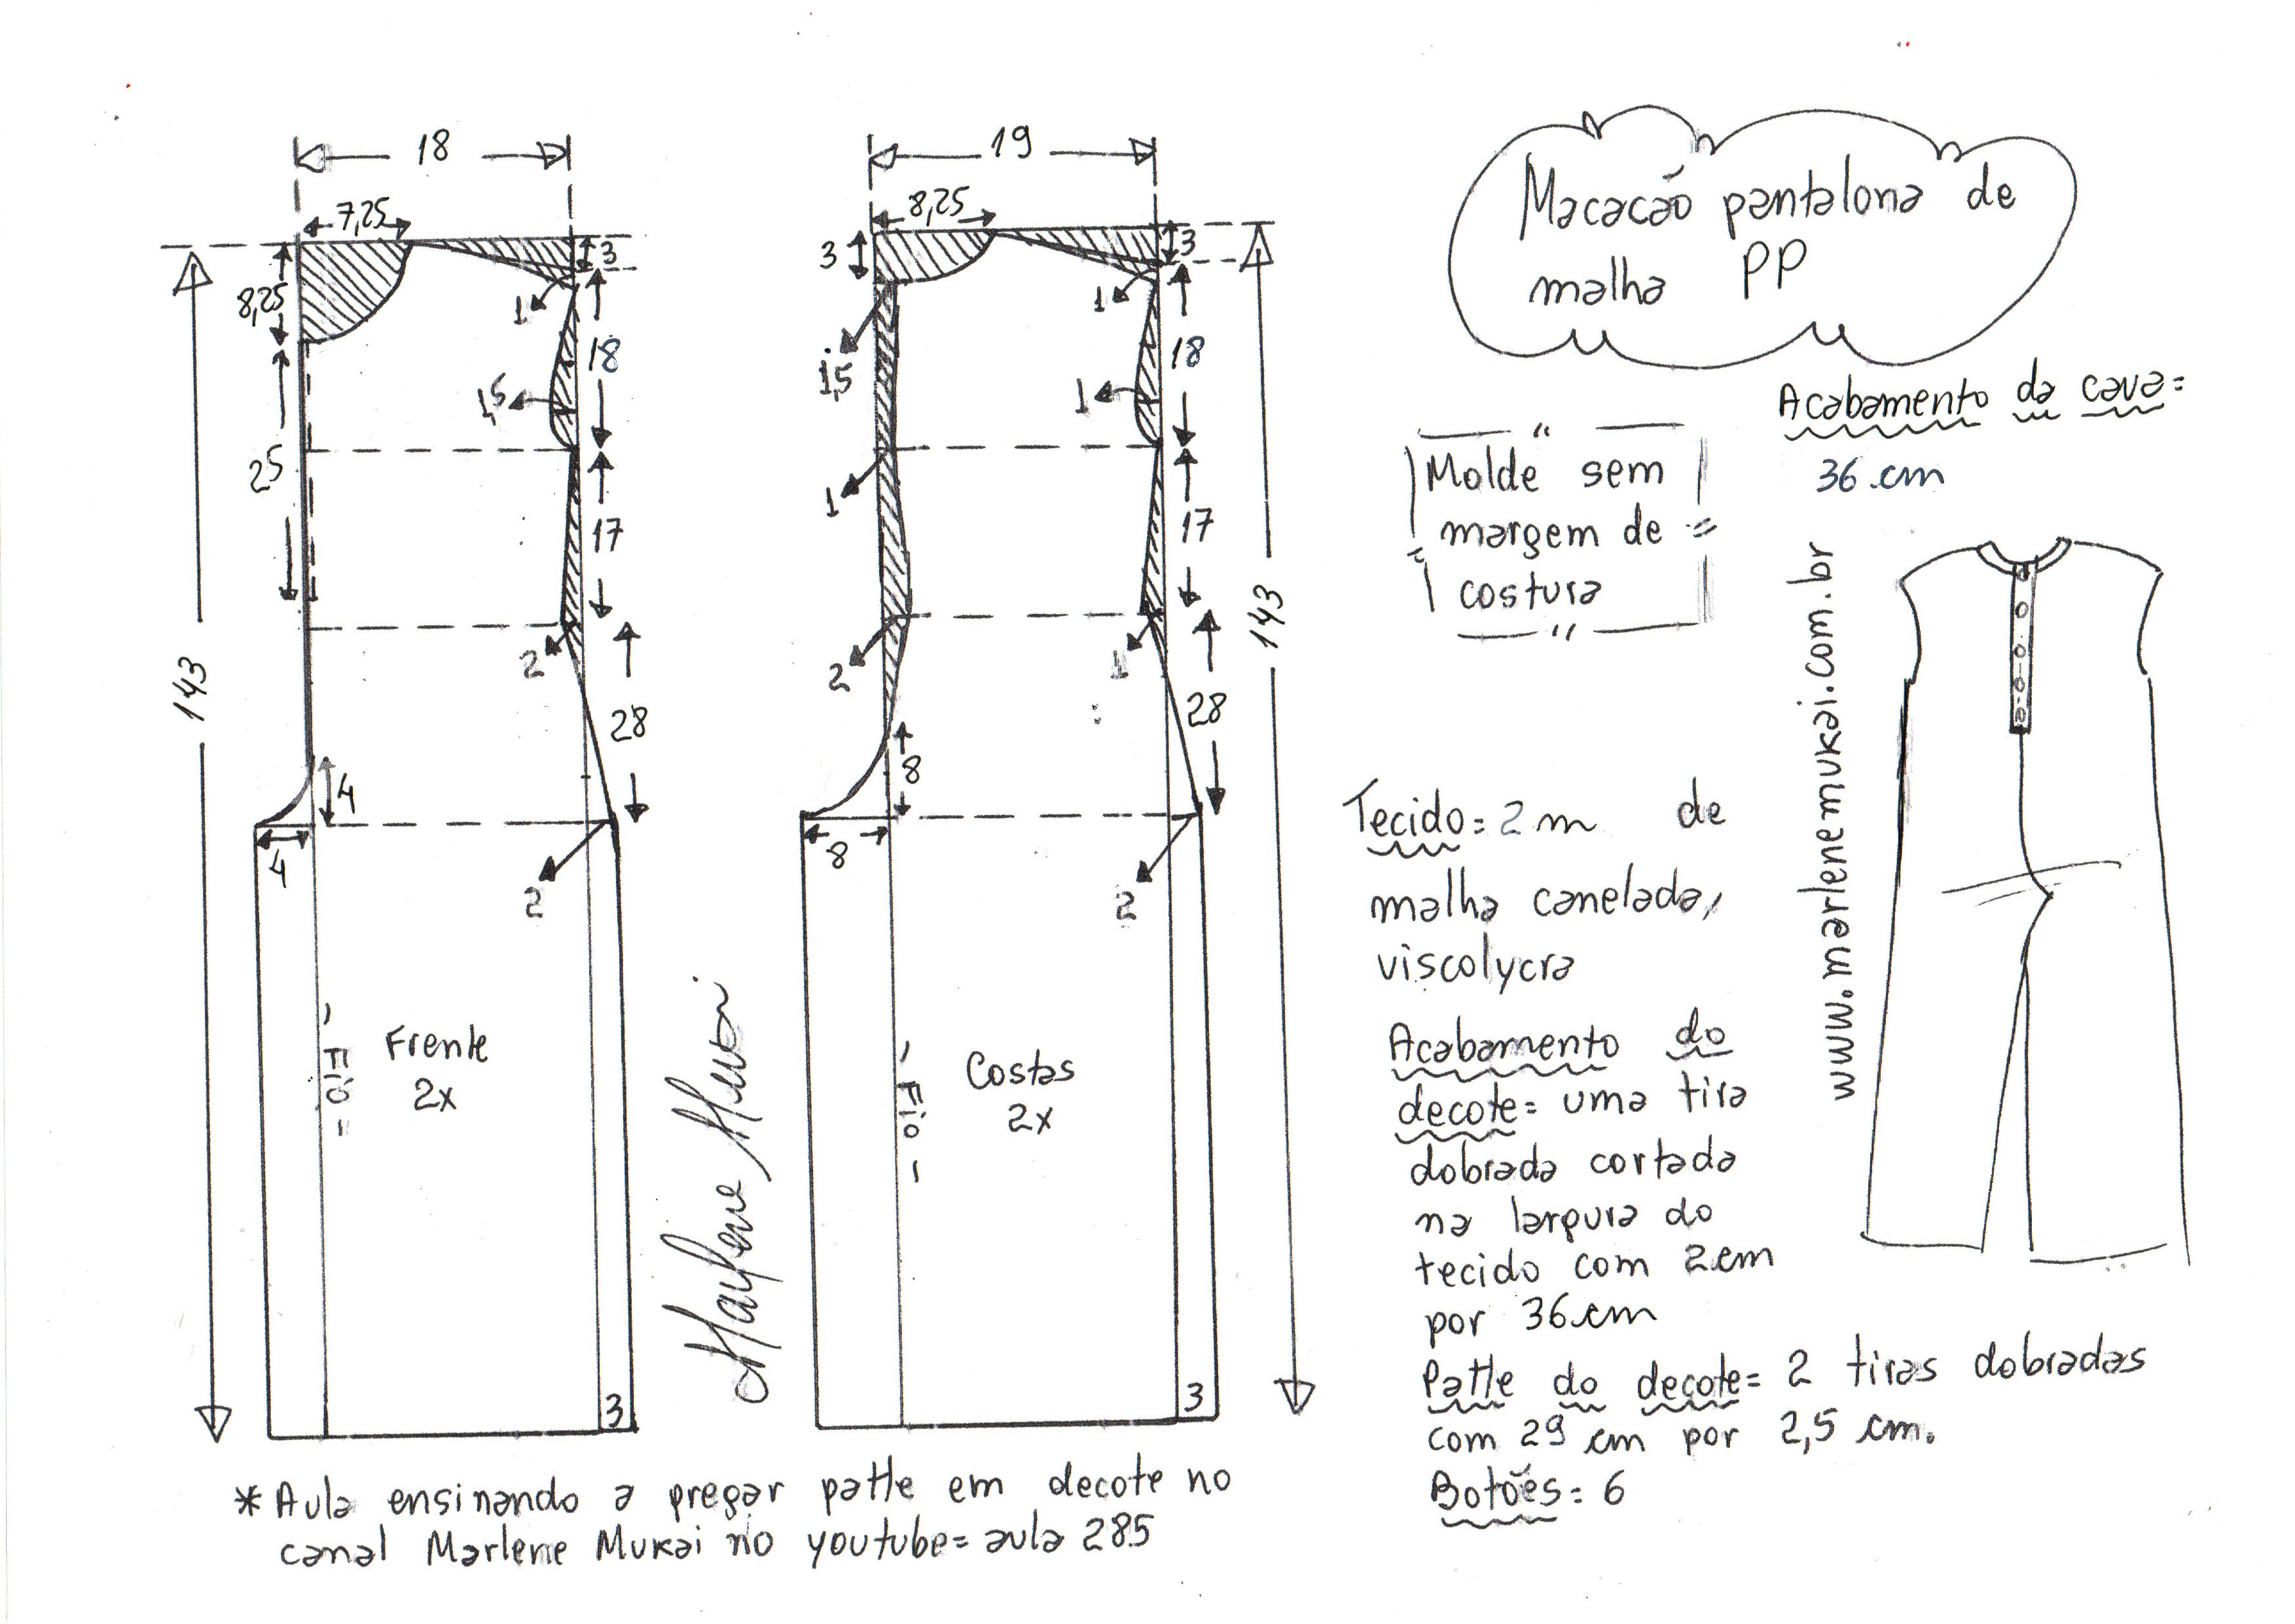 18
7,25
8,25
3
1
18
1,5
25
17
2
28
143
4
4
2
- Fio -
Frente
2x
3
19
8,25
3
3
1
1,5
18
1
1
17
2
1
28
143
8
8
2
- Fio -
Costas
2x
3
Marlene Mukai
* Aula ensinando a pregar patte em decote no
canal Marlene Mukai no youtube= aula 285
Macacão pantalona de
malha PP
Acabamento da cava=
36 cm
Molde sem
margem de
costura
www.marlenemukai.com.br
Tecido= 2 m de
malha canelada,
viscolycra
Acabamento do
decote= uma tira
dobrada cortada
na largura do
tecido com 2 cm
por 36 cm
Patte do decote= 2 tiras dobradas
com 29 cm por 2,5 cm.
Botões= 6